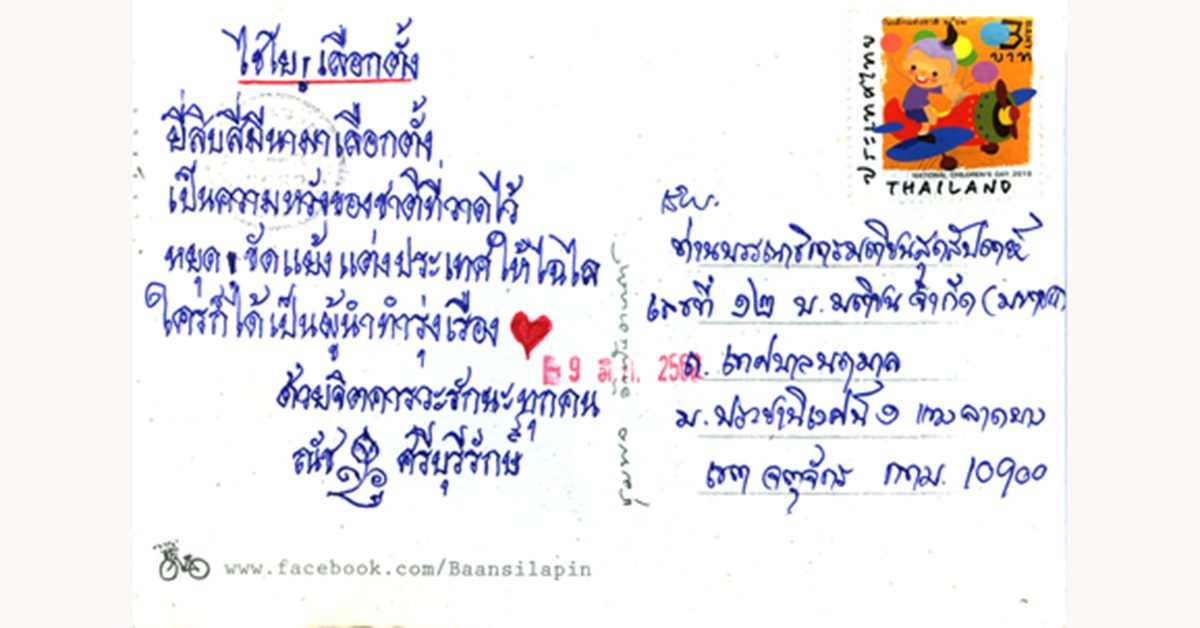 ไชโย! เลือกตั้ง
ยี่สิบสี่มีนามาเลือกตั้ง
เป็นความหวังของชาติที่วาดไว้
หยุด! ขัดแย้งแต่งประเทศให้ไฉไล
ใครก็ได้เป็นผู้นำทำรุ่งเรือง
ด้วยจิตคารวะรักนะทุกคน
ณัช ศรีบุรีรักษ์
www.facebook.com/Baansilapin
3 BAHT
บาท
ประเทศไทย
NATIONAL CHILDREN'S DAY 2019
THAILAND
เรียน
ท่านบรรณาธิการมติชนสุดสัปดาห์
เลขที่ ๑๒ บ. มติชน จำกัด (มหาชน)
ถ. เทศบาลนฤมาล
ม. ประชานิเวศน์ ๑ แขวงลาดยาว
เขต จตุจักร กทม. 10900
9 มี.ค. 2562